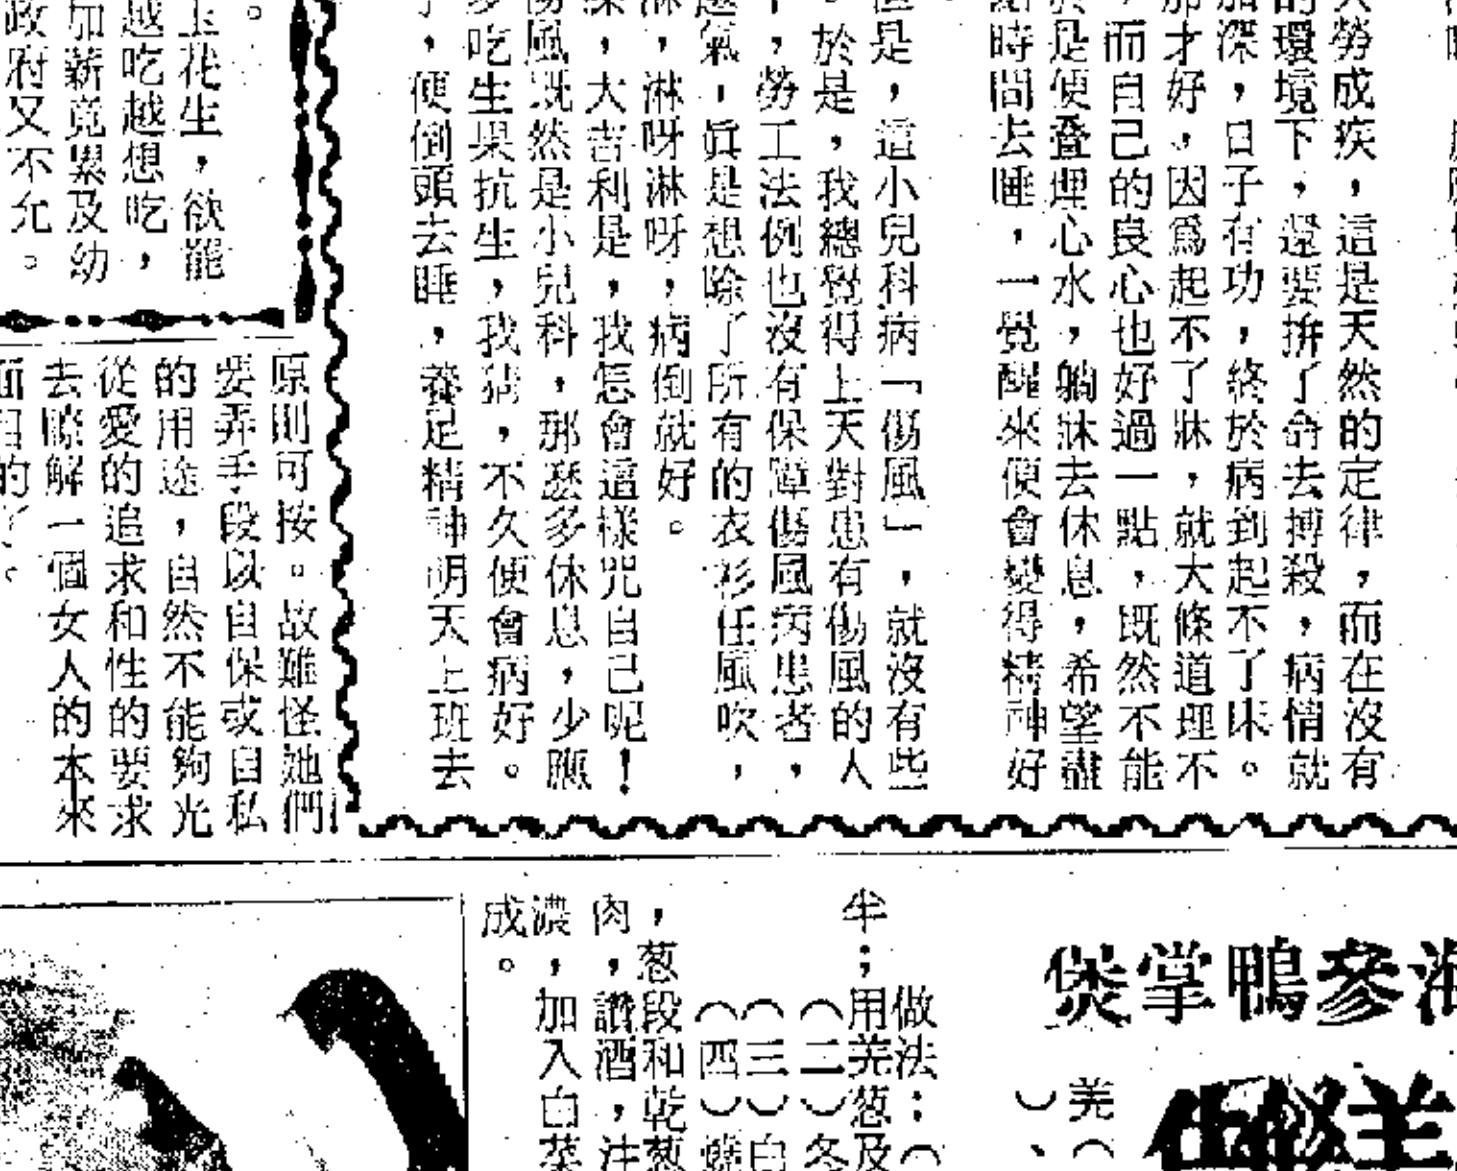 勞成疾，這是天然的定律，而在沒有
的環境下，還要拚了命去搏殺，病情就
加深，日子有功，終於病到起不了床。
那才好，因為起不了牀，就大條道理不
，而自己的良心也好過一點，既然不能
於是便叠埋心水，躺牀去休息，希望盡
時間去睡，一覺醒來便會變得精神好
但是，這小兒科病「傷風」，就沒有些
。於是，我總覺得上天對患有傷風的人
，勞工法例也沒有保障傷風病患者，
越氣，眞是想除了所有的衣衫任風吹，
淋，淋呀淋呀，病倒就好。
深，大吉利是，我怎會這樣咒自己呢！
傷風既然是小兒科，那麼多休息，少應
多吃生果抗生，我猜，不久便會病好。
，便倒頭去睡，養足精神明天上班去
。
玉花生，欲罷
越吃越想吃，
加薪竟累及幼
政府又不允。
原則可按。故難怪她們
要弄手段以自保或自私
的用途，自然不能夠光
從愛的追求和性的要求
去瞭解一個女人的本來
面目的了。
海參鴨掌煲
羌（
）、
做法：（
半；用羌葱及
（二）冬
（三）白
（四）燒
，葱段和乾葱
肉，讚酒，注
濃，加入白菜
成。